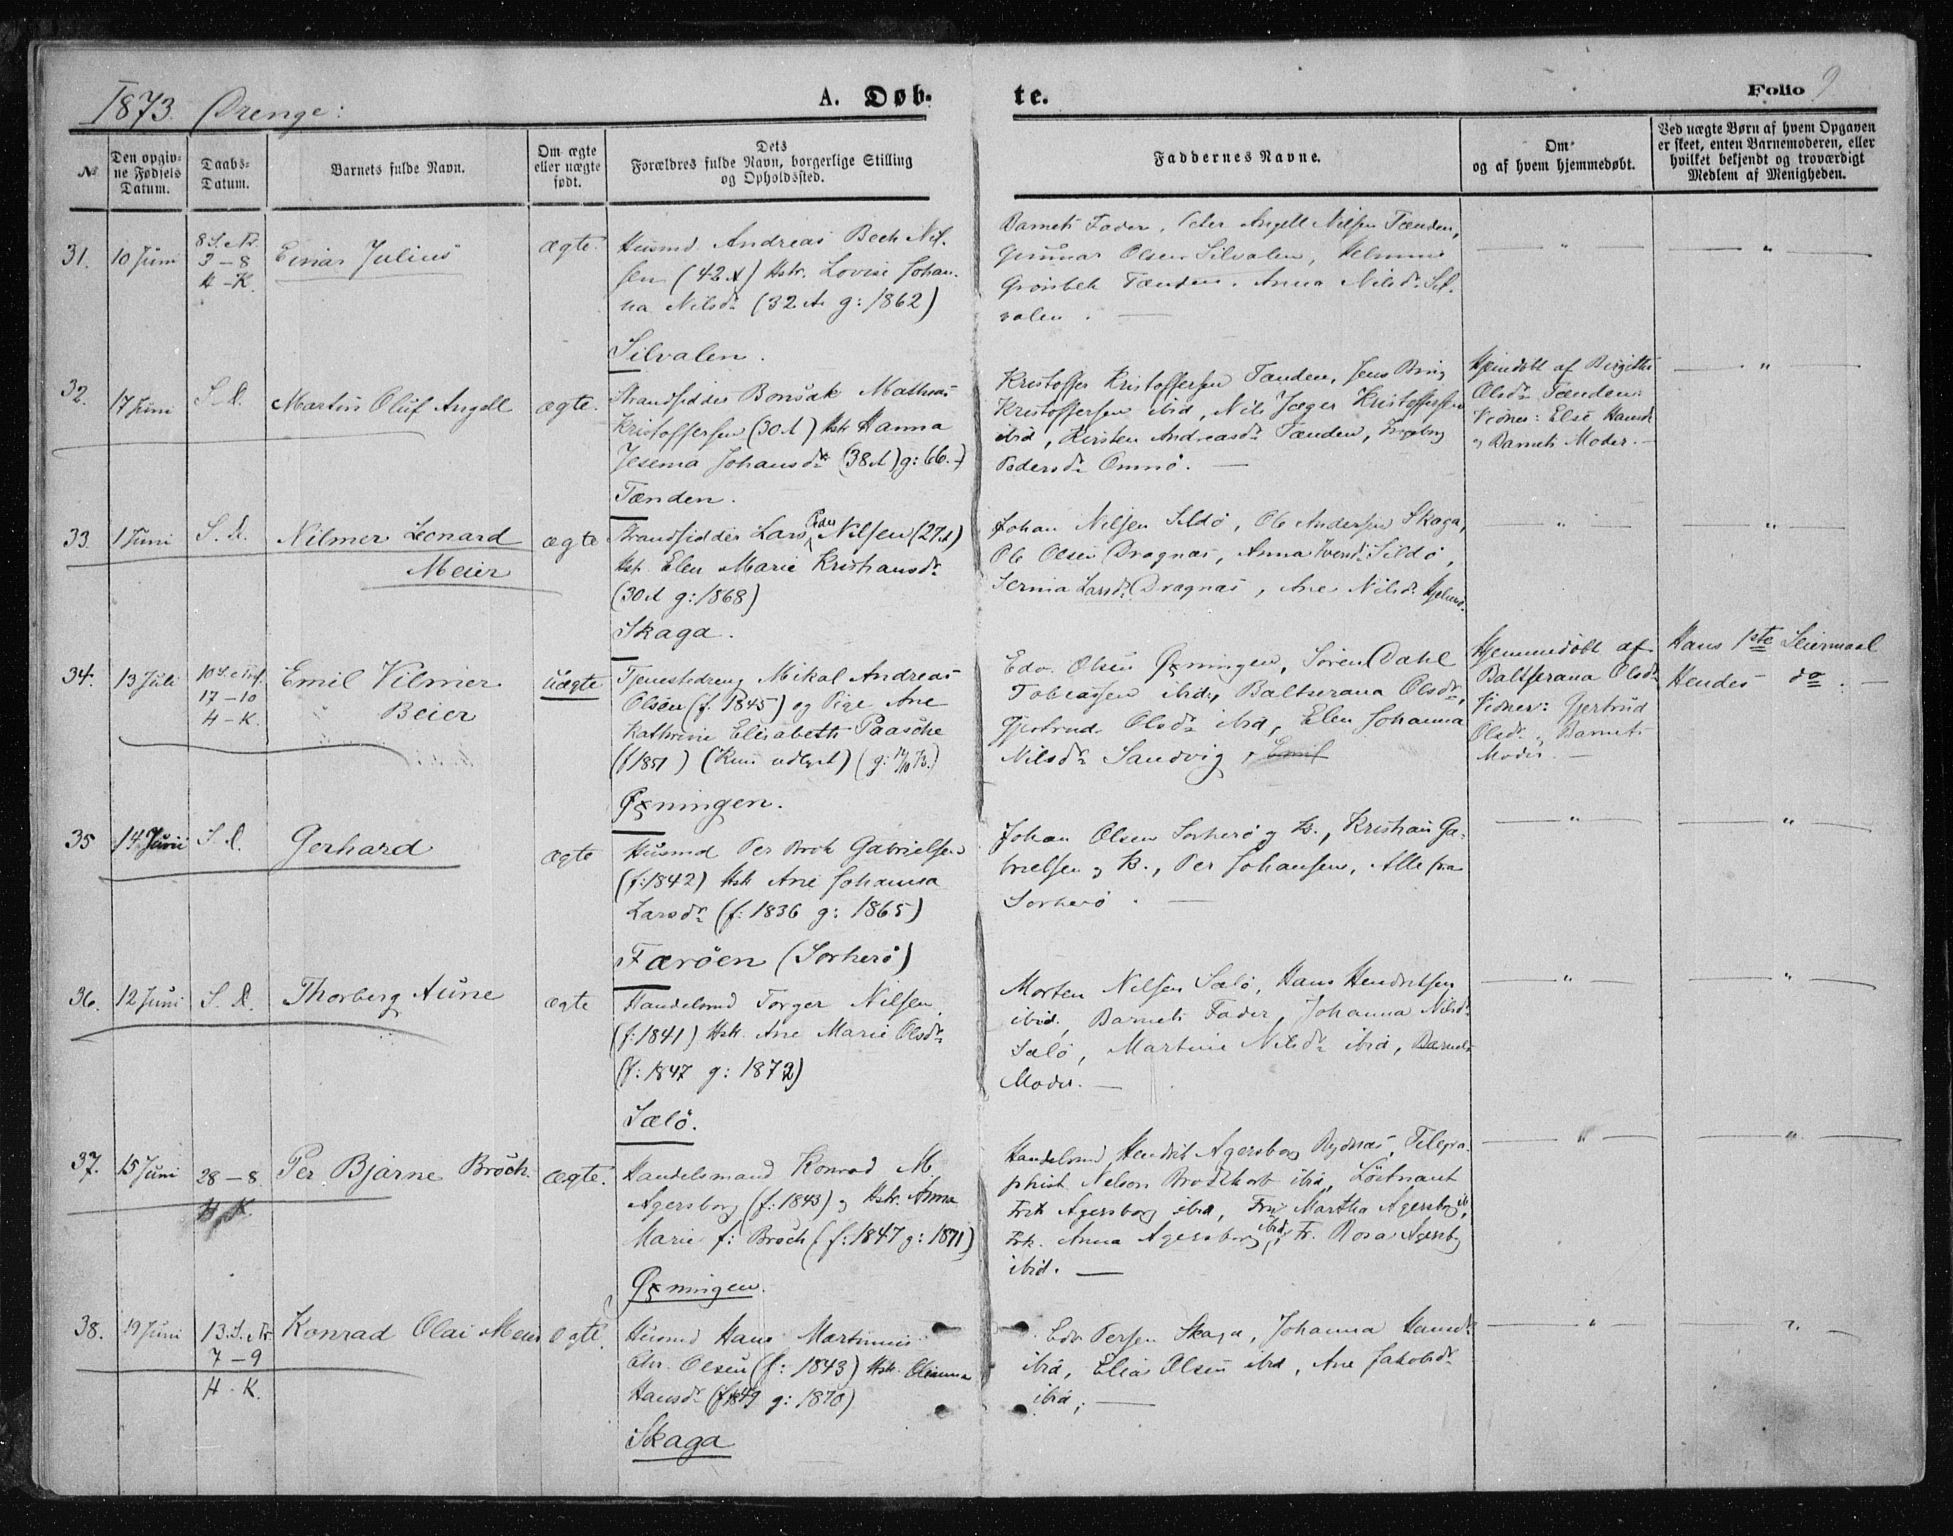 1873. Drenge:
A. Døb-
te.
Folio 9
№
Den opgiv-
ne Fødsels
Datum.
Daabs-
Datum.
Barnets fulde Navn.
Om ægte
eller uægte
født.
Dets
Forældres fulde Navn, borgerlige Stilling
og Opholdssted.
Faddernes Navne.
Om
og af hvem hjemmedøbt.
Ved uægte Børn af hvem Opgaven
er skeet, enten Barnemoderen, eller
hvilket bekjendt og troværdigt
Medlem af Menigheden.
31.
10 Juni
8 S. e. Tr.
3-8
H-K.
Einar Julius
ægte.
Husmd Andreas Bech Nil-
sen (42 A) Hstr. Lovise Johan-
na Nilsdr (32 A. g: 1862)
Silvalen.
Barnets Fader, Peter Angell Nilsen Tænden,
Gunnar Olsen Silvalen,
Grønbech Tænden, Anna Nilsdr Sil-
valen. —
— " —
— " —
32.
17 Juni
S. D.
Martin Oluf Angell
ægte.
Strandsidder Bonsak Mathias
Kristoffersen (30 A) Hstr Hanna
Jesema Johansdr (38 A) g: 66.-)
Tænden.
Kristoffer Kristoffersen Tænden, Jens Bing
Kristoffersen ibid, Nils Jæger Kristoffersen
ibid, Kirsten Andreasdr Tænden, Ingebrg
Pedersdr Omnø. —
Hjemdøbt af Birgitte
Olsdr Tænden.
Vidner: Else Hansdr
og Barnets Moder. —
— " —
33.
1 Juni
S. D.
Nilmer Leonard
Meier
ægte
Strandsidder Lars Peder Nilsen (27 A)
Hstr. Elen Marie Kristiansdr
(30 A g: 1868)
Skaga.
Johan Nilsen Sildø, Ole Andersen Skaga,
Ole Olsen Dragnæs, Anna Iversdr Sildø,
Serina Larsdr Dragnæs, Ane Nilsdr
— " —
— " —
34.
13 Juli
10 S. e Trf.
17-10
H-K.
Emil Vilmer
Beier
uægte
Tjenestedreng Mikal Andreas
Olsen (f. 1845) og Pige Ane
Kathrine Elisabeth Paasche
(f 1851) (Kun udlagt) (g: 14/10 73.)
Øxningen.
Edv. Olsen Øxningen, Søren Dahl
Tobiassen ibid, Baltserana Olsdr,
Gjertrud Olsdr ibid, Elen Johanna
Nilsdr Sandvig, Emil
Hjemmedøbt af
Baltserana Olsdr
Vidner: Gjertrud
Olsdr. Barnets
Moder. —
Hans 1ste Leiermaal
Hendes do. —
35
14 Juni
S. D.
Gerhard
ægte
Husmd Per Broch Gabrielsen
(f: 1842) Hstr Ane Johanna
Larsdr (f: 1836 g: 1865)
Færöen (Sorherö)
Johan Olsen Sorherø og K., Kristian Ga-
brielsen og K., Per Johansen, Alle fra
Sorherø. —
— " —
— " —
36.
12 Juni
S. D.
Thorberg Aune
ægte
Handelsmd Torger Nilsen
(f: 1841) Hstr. Ane Marie Olsdr
(f: 1847 g: 1872)
Sælö.
Morten Nilsen Sælø, Hans Hendriksen
ibid, Barnets Fader, Johanna Nilsdr
Sælø, Martine Nilsdr ibid, Barnets
Moder. —
— " —
— " —
37.
15 Juni
28-8
H. K.
Per Bjarne Broch.
ægte.
Handelsmand Konrad M
Agersborg (f: 1843) og Hstr. Anna
Marie f: Broch (f: 1847 g: 1871)
Øxningen.
Handelsmd Hendrik Agersborg Rødnæs, Telegra-
phist Nelson Brodtkorb ibid, Löitnant
Frk Agersborg ibid, Fru Martha Agersborg ib,
Frk. Anna Agersborg ibid, Fr. Rosa Agersborg
ibid. —
— " —
— " —
38.
19 Juni
13. S. e Tr
7-9
H-K.
Konrad Olai Meier
ægte.
Husmd Hans Martinus
Chr. Olsen (f: 1843) Hstr. Olianna
Hansdr (f 1849 g: 1870)
Skaga
Edv Persen Skaga, Johanna Hansdr
ibid, Elias Olsen ibid, Ane Jakobsdr
ibid, —
— " —
— " —